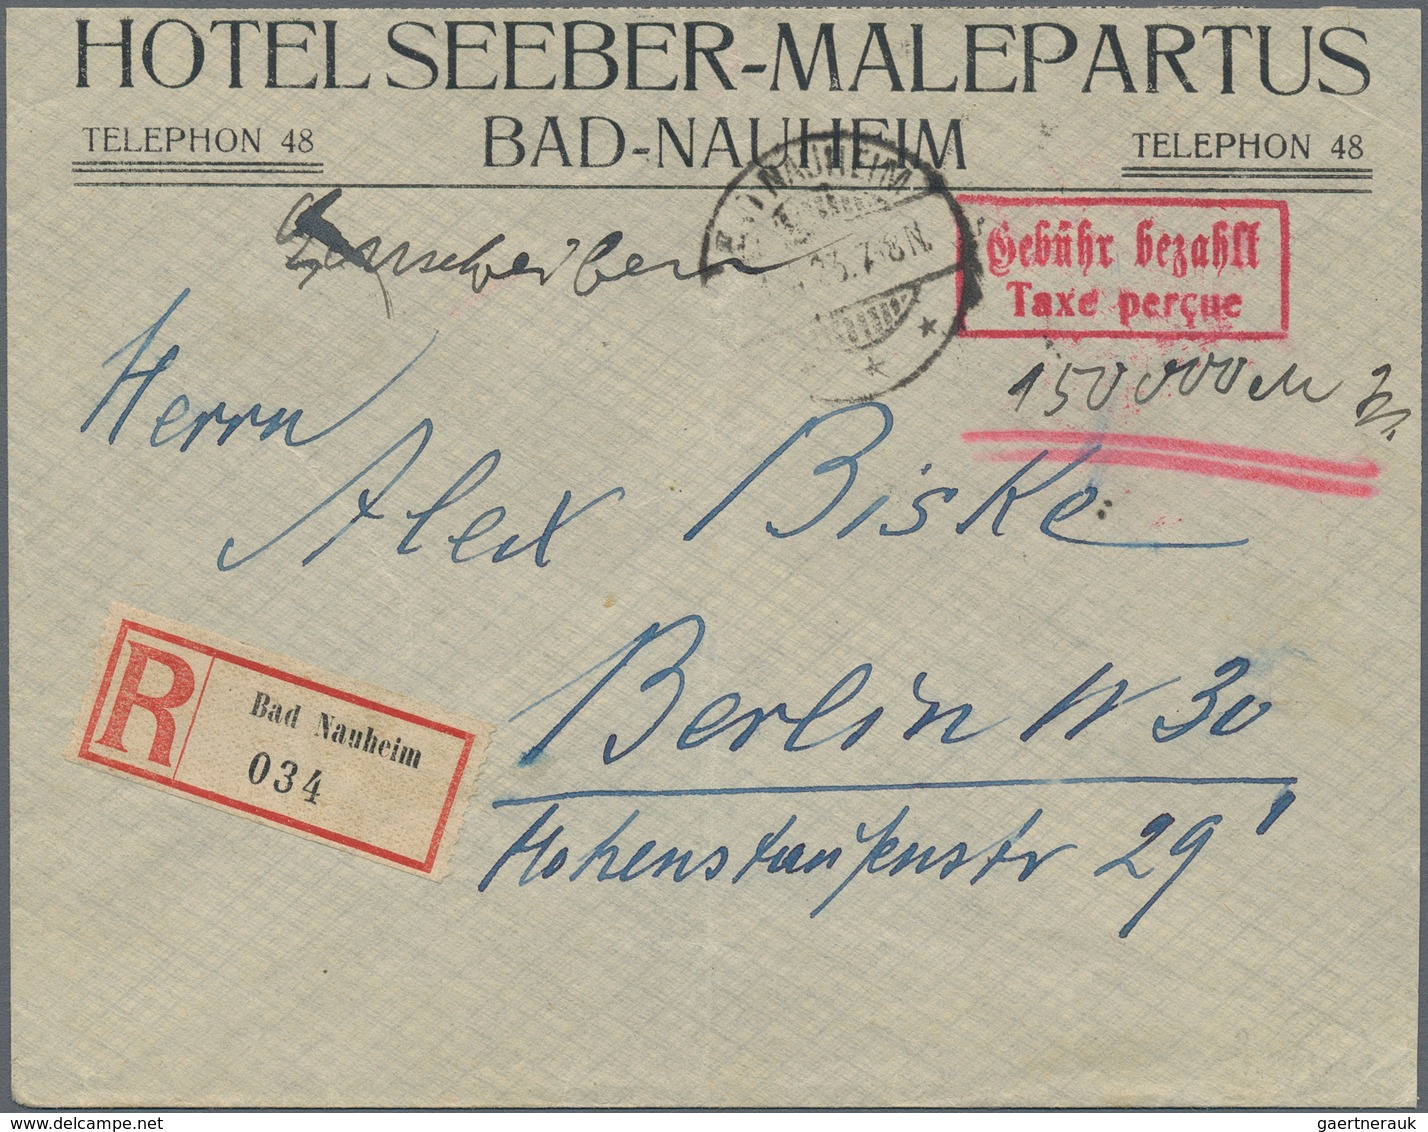 HOTEL SEEBER-MALEPARTUS
TELEPHON 48
BAD-NAUHEIM
TELEPHON 48
BAD NAUHEIM
23. 7-8 N.
Einschreiben
Gebühr bezahlt
Taxe perçue
150000 M
Herrn
Alex Biske
Berlin W 30
Hohenstaufenstr 29
R
Bad Nauheim
034
gaertnerauk